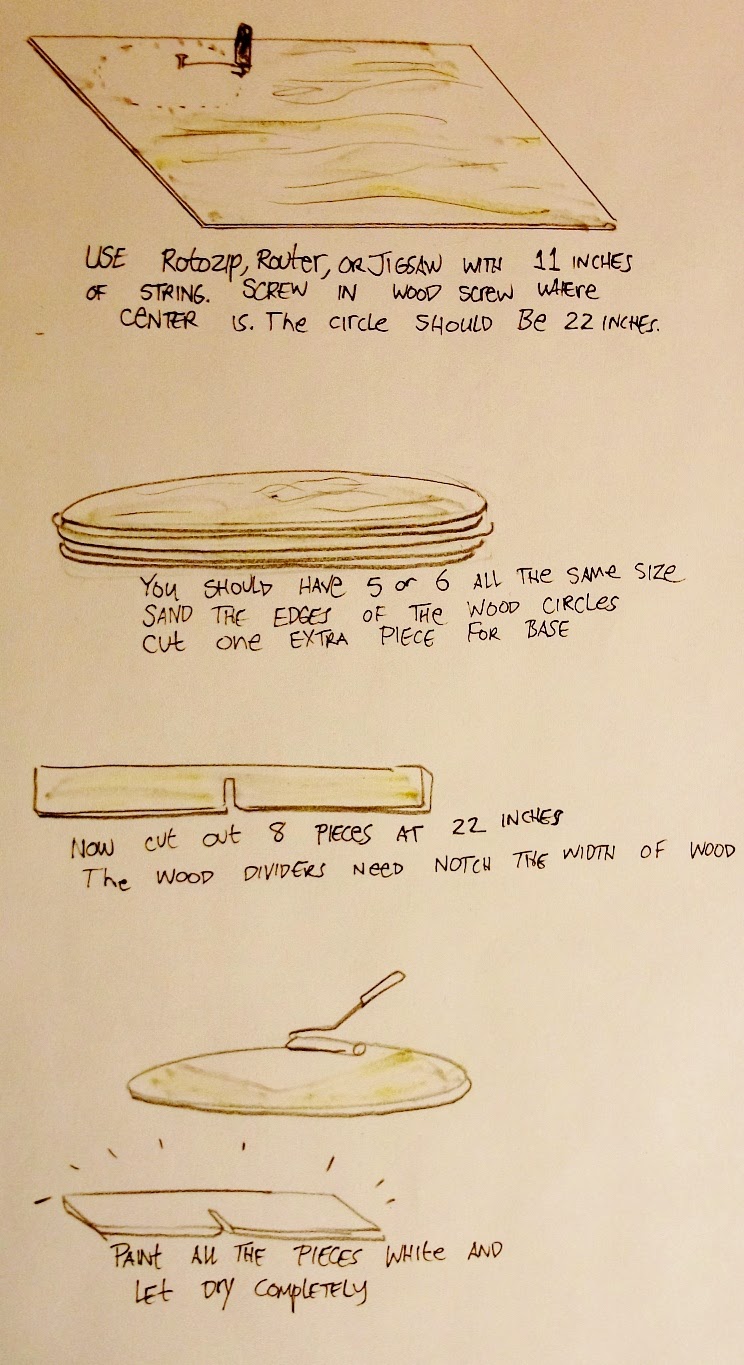 USE Rotozip, Router, OR JIGSAW WITH 11 INCHES
OF STRING. SCREW IN WOOD SCREW WHERE
CENTER IS. The circle SHOULD Be 22 INCHES.
YOU SHOULD HAVE 5 or 6 ALL THE SAME SIZE
SAND THE EDGES OF THE WOOD CIRCLES
CUT ONE EXTRA PIECE FOR BASE
NOW CUT OUT 8 PIECES AT 22 INCHES
The WOOD DIVIDERS NEED NOTCH THE WIDTH OF WOOD
PAINT ALL THE PIECES WHITE AND
LET DRY COMPLETELY